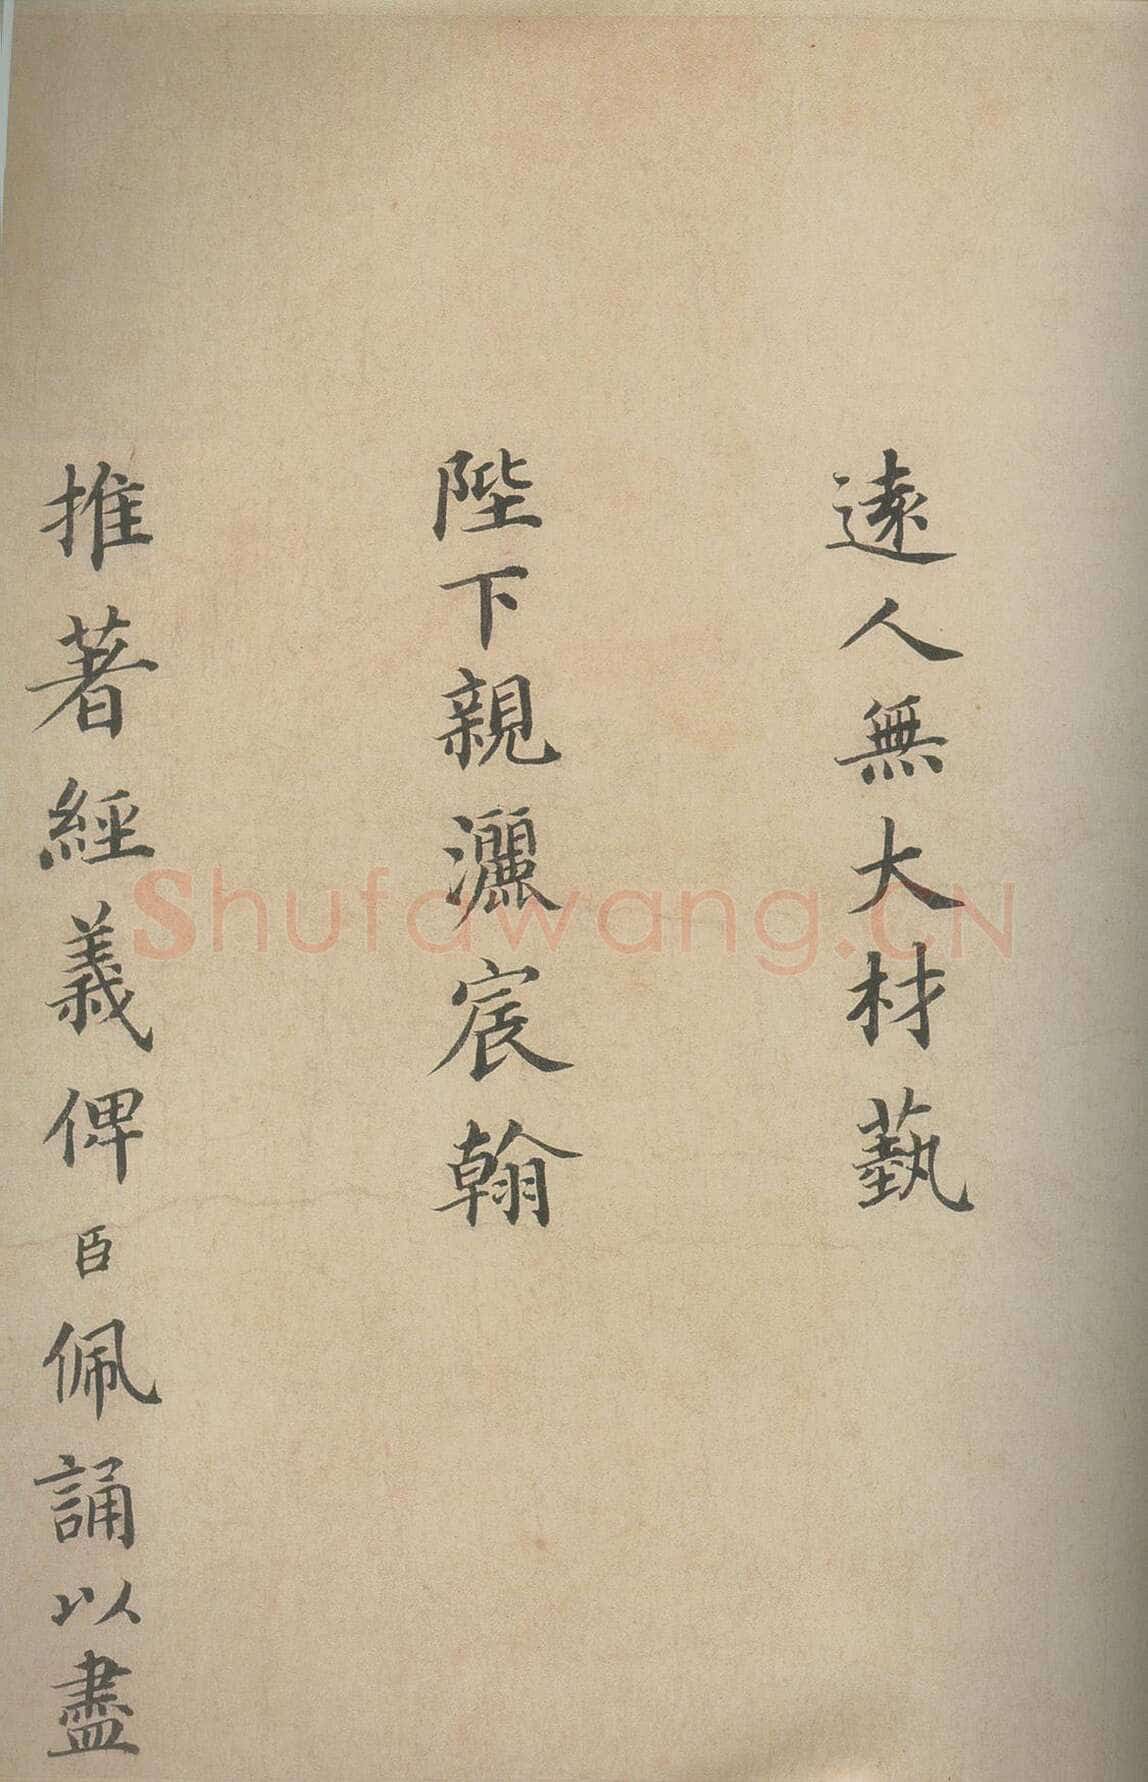 遠人無大材藝
陛下親灑宸翰
推著經義俾臣佩誦以盡
Shufawang.CN